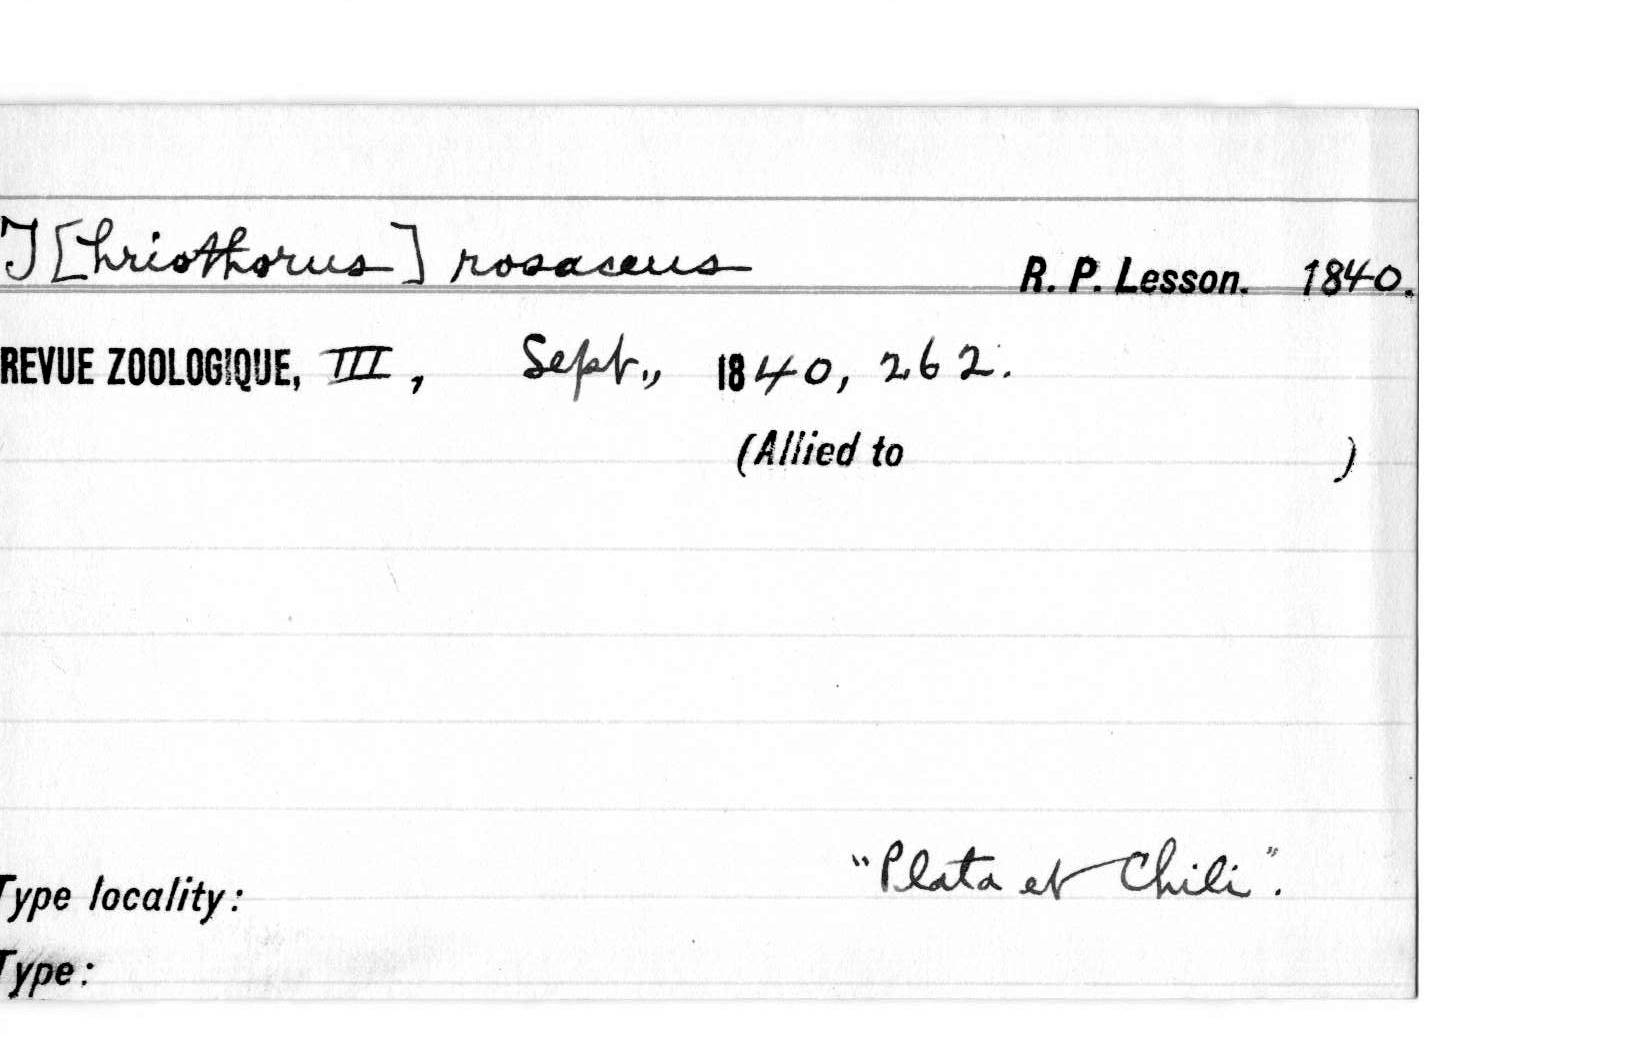 T[hriothorus] rosaceus R. P. Lesson. 1840.
REVUE ZOOLOGIQUE, III, Sept., 1840, 262.
(Allied to )
Type locality: "Plata et Chili".
Type: